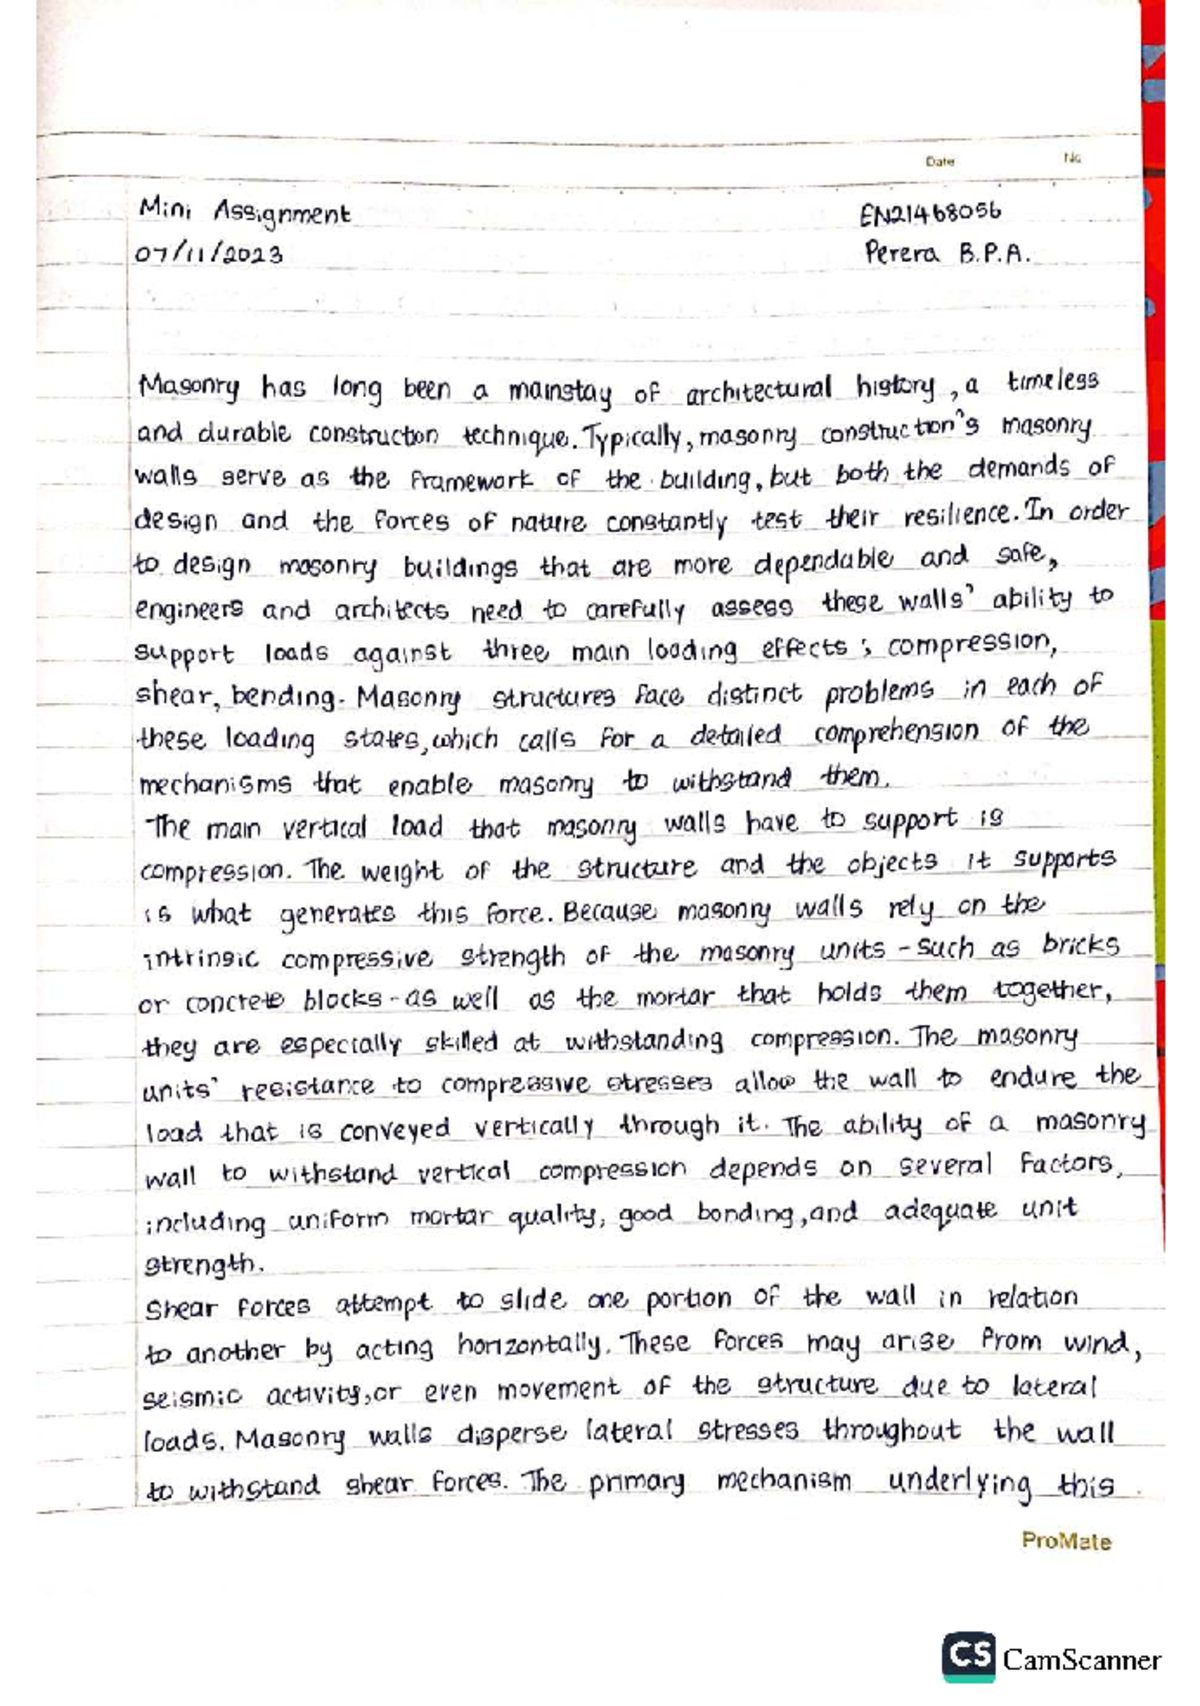 Date No
Mini Assignment EN21468056
07/11/2023 Perera B.P.A.
Masonry has long been a mainstay of architectural history, a timeless
and durable construction technique. Typically, masonry construction's masonry
walls serve as the framework of the building, but both the demands of
design and the forces of nature constantly test their resilience. In order
to design masonry buildings that are more dependable and safe,
engineers and architects need to carefully assess these walls' ability to
support loads against three main loading effects; compression,
shear, bending. Masonry structures face distinct problems in each of
these loading states, which calls for a detailed comprehension of the
mechanisms that enable masonry to withstand them.
The main vertical load that masonry walls have to support is
compression. The weight of the structure and the objects it supports
is what generates this force. Because masonry walls rely on the
intrinsic compressive strength of the masonry units - such as bricks
or concrete blocks - as well as the mortar that holds them together,
they are especially skilled at withstanding compression. The masonry
units' resistance to compressive stresses allow the wall to endure the
load that is conveyed vertically through it. The ability of a masonry
wall to withstand vertical compression depends on several factors,
including uniform mortar quality, good bonding, and adequate unit
strength.
Shear forces attempt to slide one portion of the wall in relation
to another by acting horizontally. These forces may arise from wind,
seismic activity, or even movement of the structure due to lateral
loads. Masonry walls disperse lateral stresses throughout the wall
to withstand shear forces. The primary mechanism underlying this
ProMate
CS CamScanner